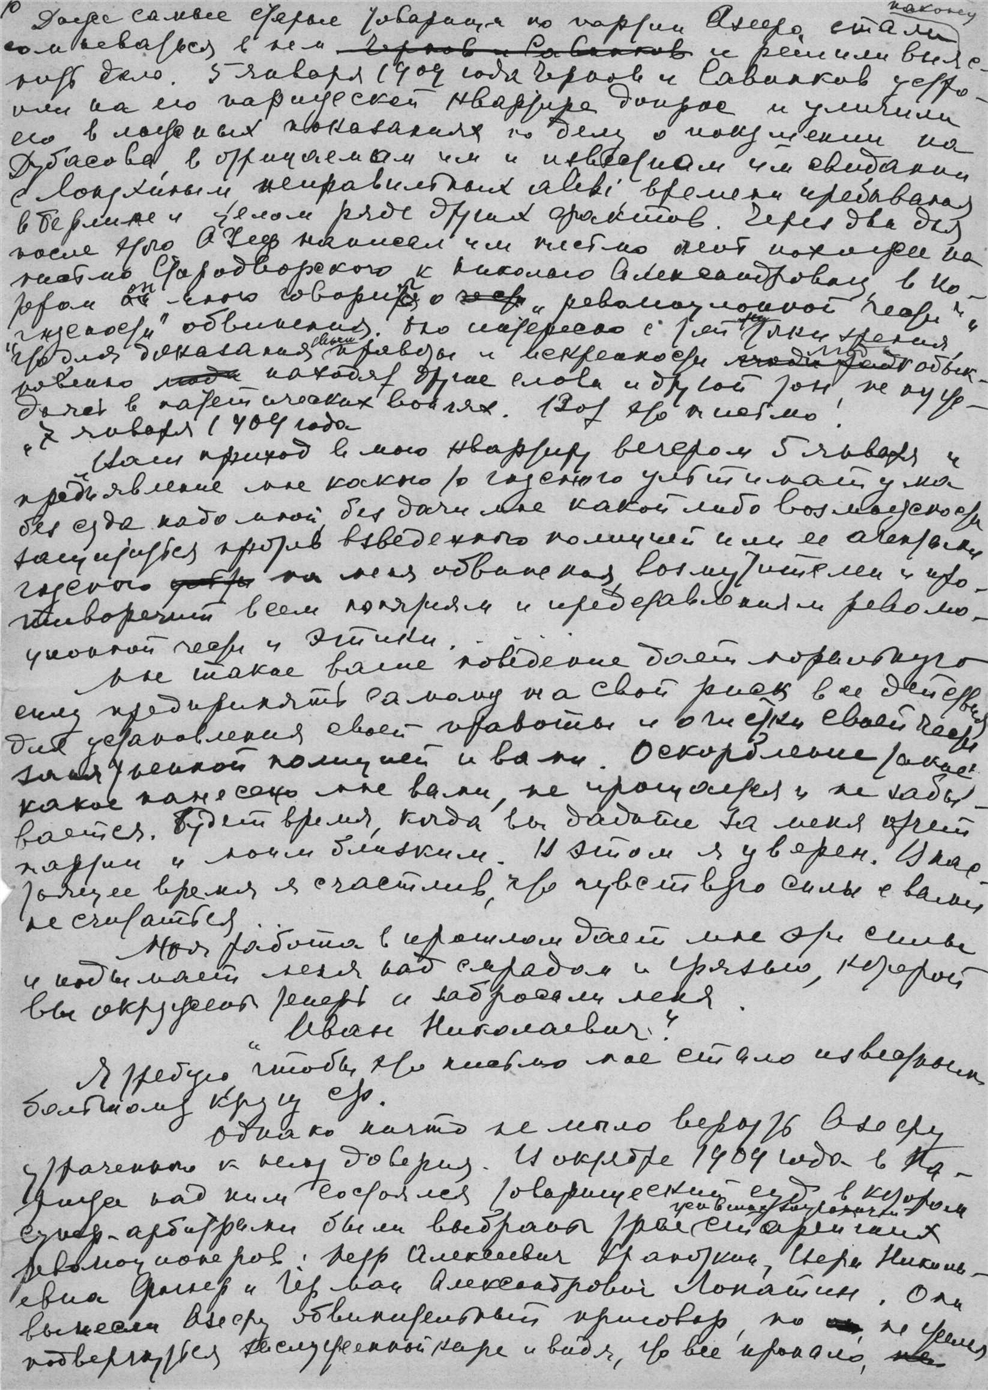 наконец
Даже самые старые товарищи по партии Азефа стали
сомневаться в нем Чернов и Савинков и решили выяс-
нить дело. 5 января 1909 года Чернов и Савинков устро-
или на его парижской квартире допрос и уличили
его в ложных показаниях по делу о покушении на
Дубасова, в отрицаемом им и известном им свидании
с Лопухиным неправильных alibi времени пребывания
в Берлине и целом ряде других фактов. Через два дня
после этого Азеф написал им письмо похожее на
письмо Стародворского к Николаю Александровичу, в ко-
тором он много говорит о чести „революционной чести" и
„гнусности" обвинения. Оно интересно с той точки зрения,
что для доказания своей правды и искренности люди обык-
новенно люди находят другие слова и другой тон, не нуж-
даясь в патетических воплях. Вот это письмо.
„7 января 1909 года
„Ваш приход в мою квартиру вечером 5 января и
предъявление мне какого то гнусного ультиматума
без суда надо мной, без дачи мне какой либо возможности
защищаться против взведенного полицией или ее агентами
гнусного на меня обвинения, возмутителен и про-
тиворечит всем понятиям и представлениям револю-
ционной чести и этики.
Мне такое ваше поведение дает моральную
силу предпринять самому на свой риск все действия
для установления своей правоты и очистки своей чести
запятненной полицией и вами. Оскорбление такое
какое нанесено мне вами, не прощается и не забы-
вается. Будет время, когда вы дадите за меня отчет
партии и моим близким. В этом я уверен. В нас-
тоящее время я счастлив, что чувствую силы с вами
не считаться.
Моя работа в прошлом дает мне эти силы
и подымает меня над смрадом и грязью, которой
вы окружены теперь и забросали меня.
Иван Николаевич."
„Я требую, чтобы это письмо мое стало известным
большому кругу с-р.
Однако ничто не могло вернуть Азефу
утраченного к нему доверия. В октябре 1909 года в Па-
риже над ним состоялся товарищеский суд в котором
судьями-арбитрами были выбраны трое старейших
революционеров: Петр Алексеевич Кропоткин, Вера Никола-
евна Фигнер и Герман Александрович Лопатин. Они
вынесли Азефу обвинительный приговор, но не желая
подвергнуться заслуженной каре и видя, что все пропало,